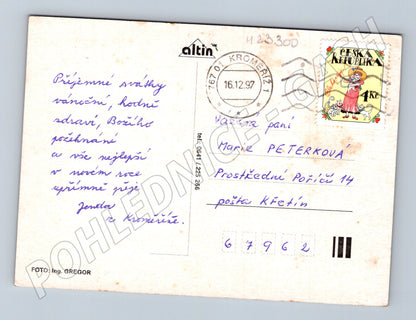 Příjemné svátky
vánoční, hodně
zdraví, Božího
požehnání
a vše nejlepší
v novém roce
upřímně přeje
Jenda
z Kroměříže.
FOTO: Ing. GREGOR
altin
tel.: 0641 / 225 266
H 23.300
767 01 KROMĚŘÍŽ 1
16.12.97
ČESKÁ
REPUBLIKA
4 Kč
Vážená paní
Marie PETERKOVÁ
Prostřední Poříčí 14
pošta Křetín
67962
POHLEDNICE-